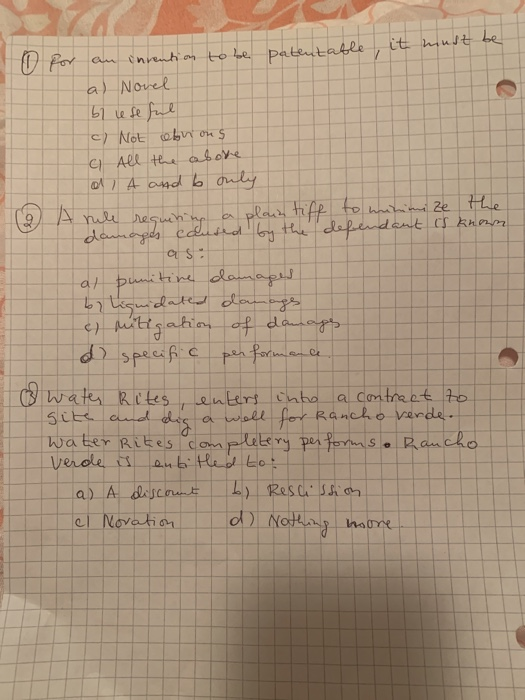 ① For an invention to be patentable, it must be
a) Novel
b) useful
c) Not obvious
c) All the above
d) A and b only
② A rule requiring a plaintiff to minimize the
damages caused by the defendant is known
as:
a) punitive damages
b) Liquidated damages
c) Mitigation of damages
d) specific performance.
③ Water Rites, enters into a contract to
site and dig a well for Rancho verde.
Water Rites completery performs. Rancho
Verde is entitled to:
a) A discount b) Rescission
c) Novation d) Nothing more.